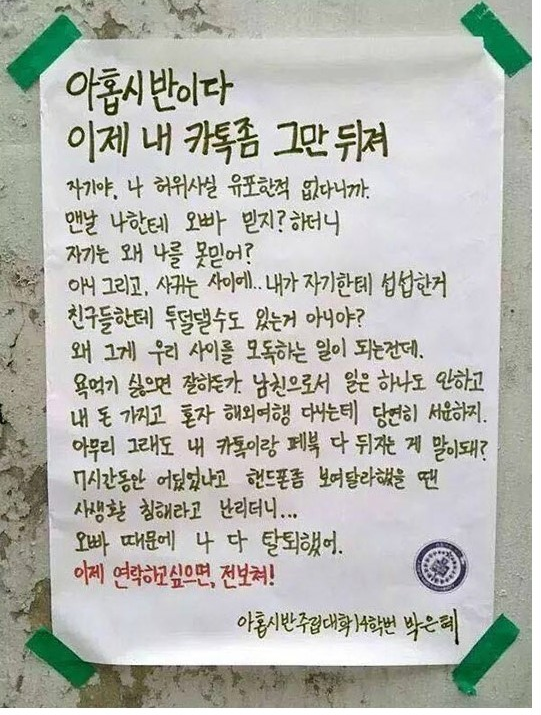 아홉시반이다
이제 내 카톡좀 그만 뒤져
자기야, 나 허위사실 유포한적 없다니까.
맨날 나한테 오빠 믿지? 하더니
자기는 왜 나를 못믿어?
아니 그리고, 사귀는 사이에.. 내가 자기한테 섭섭한거
친구들한테 투덜댈수도 있는거 아니야?
왜 그게 우리 사이를 모독하는 일이 되는건데.
욕먹기 싫으면 잘하든가. 남친으로서 일은 하나도 안하고
내 돈 가지고 혼자 해외여행 다니는데 당연히 서운하지.
아무리 그래도 내 카톡이랑 페북 다 뒤지는 게 말이돼?
7시간동안 어딨었냐고 핸드폰좀 보여달라했을 땐
사생활 침해라고 난리더니...
오빠 때문에 나 다 탈퇴했어.
이제 연락하고싶으면, 전보쳐!
아홉시반주립대학14학번 박은혜